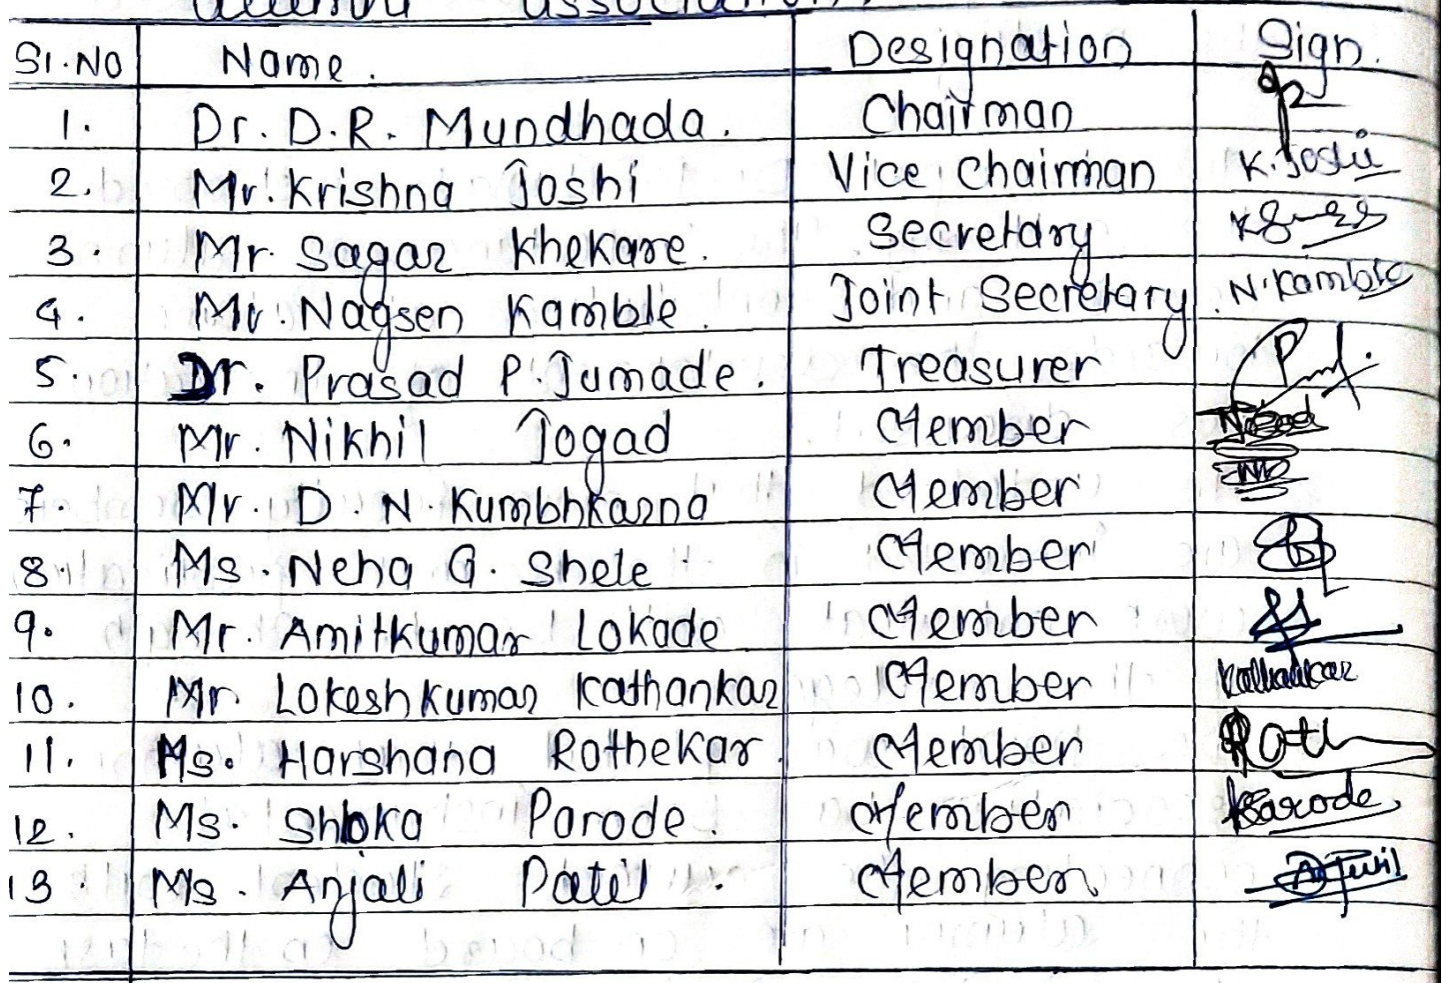 Alumni Association.
Sl.No Name. Designation Sign.
1. Dr. D.R. Mundhada. Chairman
2. Mr. Krishna Joshi Vice Chairman K.Joshi
3. Mr. Sagar Khekare. Secretary
4. Mr. Nagsen Kamble. Joint Secretary. N.Kamble
5. Dr. Prasad P. Jumade. Treasurer
6. Mr. Nikhil Jogad Member
7. Mr. D. N. Kumbhkarna Member
8. Ms. Neha G. Shele Member
9. Mr. Amitkumar Lokade Member
10. Mr. Lokeshkumar Kathankar Member Kathankar
11. Ms. Harshana Rothekar. Member Roth
12. Ms. Shloka Parode. Member
13. Ms. Anjali Patil. Member